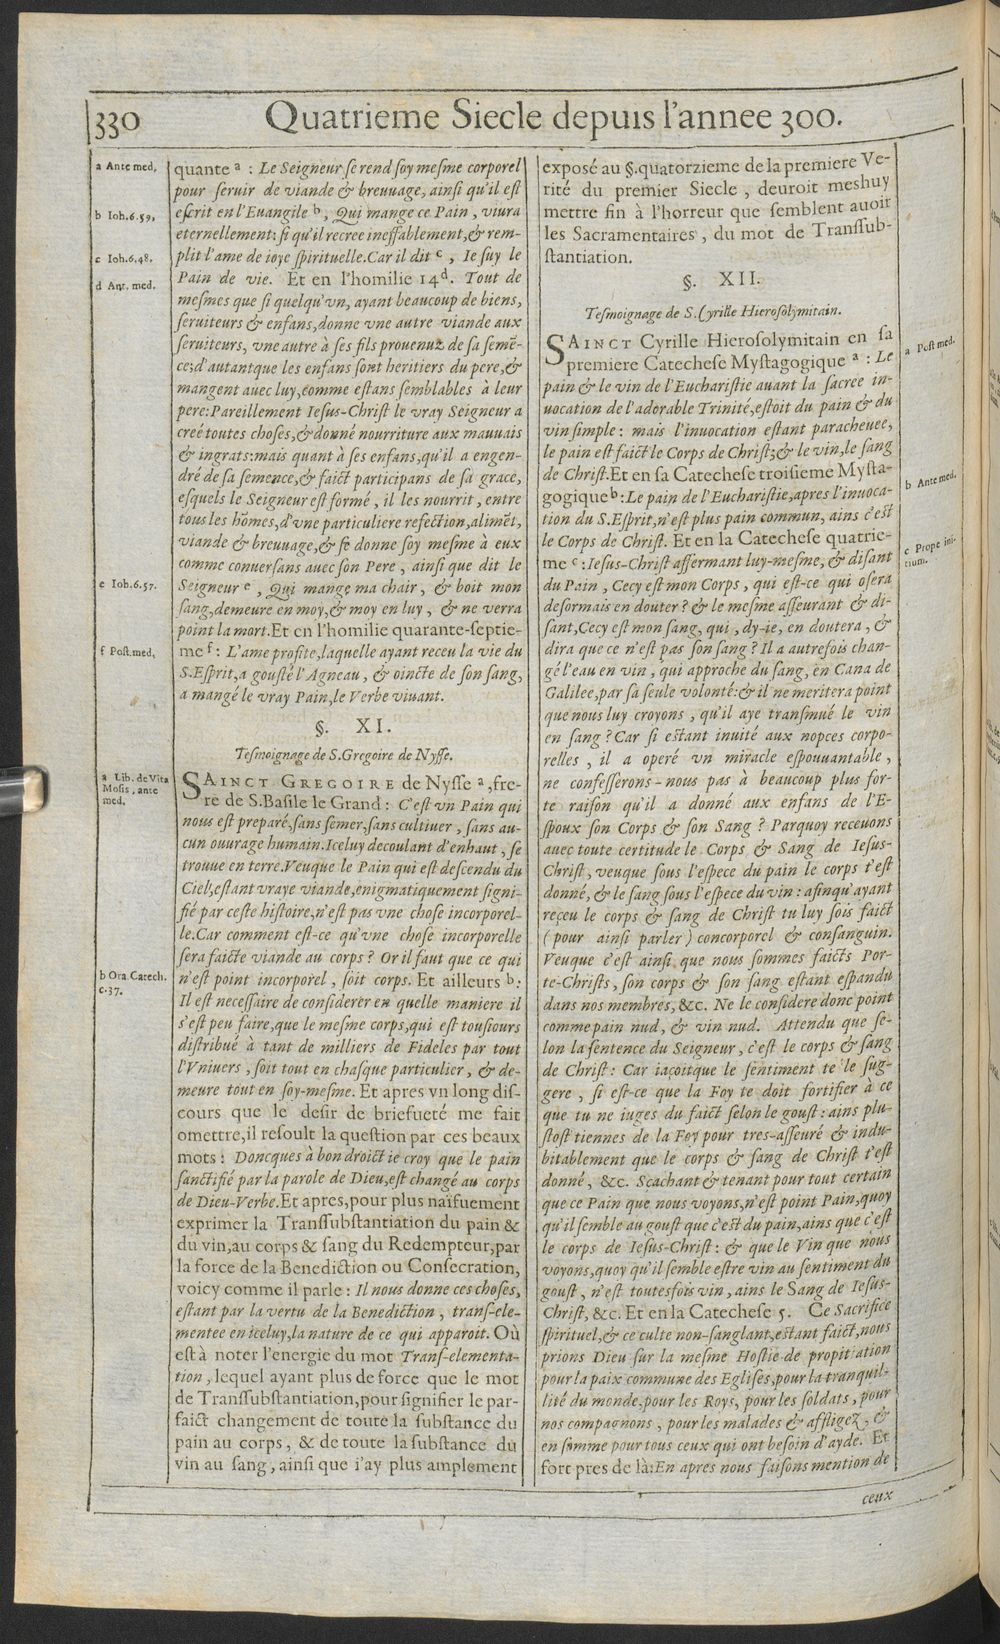 330
Quatrieme Siecle depuis l'annee 300.
a Ante med.
b Ioh.6.59,
c Ioh.6.48.
d Ant. med.
e Ioh.6.57.
f Post.med,
a Lib. de Vita
Mosis, ante
med.
b Ora Catech.
c.37.
quante ª : Le Seigneur ſe rend ſoy meſme corporel
pour ſeruir de viande & breuuage, ainſi qu'il eſt
eſcrit en l'Euangile ᵇ, Qui mange ce Pain , viura
eternellement: ſi qu'il recree ineffablement,& rem-
plit l'ame de ioye ſpirituelle.Car il dit ᶜ , Ie ſuy le
Pain de vie. Et en l'homilie 14ᵈ. Tout de
meſmes que ſi quelqu'vn, ayant beaucoup de biens,
ſeruiteurs & enfans,donne vne autre viande aux
ſeruiteurs, vne autre à ſes fils prouenuz de ſa ſemē-
ce;d'autantque les enfans ſont heritiers du pere,&
mangent auec luy,comme eſtans ſemblables à leur
pere:Pareillement Ieſus-Chriſt le vray Seigneur a
creé toutes choſes,& donné nourriture aux mauuais
& ingrats:mais quant à ſes enfans,qu'il a engen-
dré de ſa ſemence,& faict participans de ſa grace,
eſquels le Seigneur eſt formé , il les nourrit , entre
tous les hōmes,d'vne particuliere refection,alimēt,
viande & breuuage,& ſe donne ſoy meſme à eux
comme conuerſans auec ſon Pere , ainſi que dit le
Seigneur ᵉ , Qui mange ma chair , & boit mon
ſang,demeure en moy,& moy en luy , & ne verra
point la mort.Et en l'homilie quarante-ſeptie-
me ᶠ: L'ame profite,laquelle ayant receu la vie du
S.Eſprit,a gouſté l'Agneau , & oincte de ſon ſang,
a mangé le vray Pain,le Verbe viuant.
§. XI.
Teſmoignage de S.Gregoire de Nyſſe.
SAINCT GREGOIRE de Nyſſe ª ,fre-
re de S.Baſile le Grand : C'eſt vn Pain qui
nous eſt preparé,ſans ſemer,ſans cultiuer , ſans au-
cun ouurage humain.Iceluy decoulant d'enhaut , ſe
trouue en terre.Veuque le Pain qui eſt deſcendu du
Ciel,eſtant vraye viande,enigmatiquement ſigni-
fié par ceſte hiſtoire,n'eſt pas vne choſe incorporel-
le.Car comment eſt-ce qu'vne choſe incorporelle
ſera faicte viande au corps ? Or il faut que ce qui
n'eſt point incorporel , ſoit corps. Et ailleurs ᵇ:
Il eſt neceſſaire de conſiderer en quelle maniere il
s'eſt peu faire,que le meſme corps,qui eſt touſiours
diſtribué à tant de milliers de Fideles par tout
l'Vniuers , ſoit tout en chaſque particulier , & de-
meure tout en ſoy-meſme. Et apres vn long diſ-
cours que le deſir de briefueté me fait
omettre,il reſoult la queſtion par ces beaux
mots : Doncques à bon droict ie croy que le pain
ſanctifié par la parole de Dieu,eſt changé au corps
de Dieu-Verbe.Et apres,pour plus naïfuement
exprimer la Tranſſubſtantiation du pain &
du vin,au corps & ſang du Redempteur,par
la force de la Benediction ou Conſecration,
voicy comme il parle : Il nous donne ces choſes,
eſtant par la vertu de la Benediction , tranſ-ele-
mentee en iceluy,la nature de ce qui apparoit. Où
eſt à noter l'energie du mot Tranſ-elementa-
tion , lequel ayant plus de force que le mot
de Tranſſubſtantiation,pour ſignifier le par-
faict changement de toute la ſubſtance du
pain au corps , & de toute la ſubſtance du
vin au ſang , ainſi que i'ay plus amplement
exposé au §.quatorzieme de la premiere Ve-
rité du premier Siecle , deuroit meshuy
mettre fin à l'horreur que ſemblent auoir
les Sacramentaires , du mot de Tranſſub-
ſtantiation.
§. XII.
Teſmoignage de S.Cyrille Hieroſolymitain.
SAINCT Cyrille Hieroſolymitain en ſa
premiere Catecheſe Myſtagogique ª : Le
pain & le vin de l'Euchariſtie auant la ſacree in-
uocation de l'adorable Trinité,eſtoit du pain & du
vin ſimple : mais l'inuocation eſtant paracheuee,
le pain eſt faict le Corps de Chriſt;& le vin,le ſang
de Chriſt.Et en ſa Catecheſe troiſieme Myſta-
gogique ᵇ:Le pain de l'Euchariſtie,apres l'inuoca-
tion du S.Eſprit,n'eſt plus pain commun, ains c'eſt
le Corps de Chriſt. Et en la Catecheſe quatrie-
me ᶜ :Ieſus-Chriſt affermant luy-meſme, & diſant
du Pain , Cecy eſt mon Corps , qui eſt-ce qui oſera
deſormais en douter ? & le meſme aſſeurant & di-
ſant,Cecy eſt mon ſang, qui , dy-ie, en doutera , &
dira que ce n'eſt pas ſon ſang ? Il a autrefois chan-
gé l'eau en vin , qui approche du ſang, en Cana de
Galilee,par ſa ſeule volonté:& il ne meritera point
que nous luy croyons , qu'il aye tranſmué le vin
en ſang ? Car ſi eſtant inuité aux nopces corpo-
relles , il a operé vn miracle eſpouuantable ,
ne confeſſerons-nous pas à beaucoup plus for-
te raiſon qu'il a donné aux enfans de l'E-
ſpoux ſon Corps & ſon Sang ? Parquoy receuons
auec toute certitude le Corps & Sang de Ieſus-
Chriſt , veuque ſous l'eſpece du pain le corps t'eſt
donné, & le ſang ſous l'eſpece du vin : afinqu'ayant
receu le corps & ſang de Chriſt tu luy ſois faict
( pour ainſi parler ) concorporel & conſanguin.
Veuque c'eſt ainſi, que nous ſommes faicts Por-
te-Chriſts , ſon corps & ſon ſang eſtant eſpandu
dans nos membres, &c. Ne le conſidere donc point
comme pain nud, & vin nud. Attendu que ſe-
lon la ſentence du Seigneur , c'eſt le corps & ſang
de Chriſt : Car iaçoitque le ſentiment te le ſug-
gere , ſi eſt-ce que la Foy te doit fortifier à ce
que tu ne iuges du faict ſelon le gouſt : ains plu-
ſtoſt tiennes de la Foy pour tres-aſſeuré & indu-
bitablement que le corps & ſang de Chriſt t'eſt
donné , &c. Scachant & tenant pour tout certain
que ce Pain que nous voyons,n'eſt point Pain,quoy
qu'il ſemble au gouſt que c'eſt du pain,ains que c'eſt
le corps de Ieſus-Chriſt : & que le Vin que nous
voyons,quoy qu'il ſemble eſtre vin au ſentiment du
gouſt , n'eſt toutesfois vin , ains le Sang de Ieſus-
Chriſt, &c. Et en la Catecheſe 5. Ce Sacrifice
ſpirituel,& ce culte non-ſanglant,eſtant faict,nous
prions Dieu ſur la meſme Hoſtie de propitiation
pour la paix commune des Egliſes,pour la tranquil-
lité du monde,pour les Roys, pour les ſoldats , pour
nos compagnons , pour les malades & affligez , &
en ſomme pour tous ceux qui ont beſoin d'ayde. Et
fort pres de là:En apres nous faiſons mention de
ceux
a Poſt med.
b Ante med.
c Prope ini-
tium.